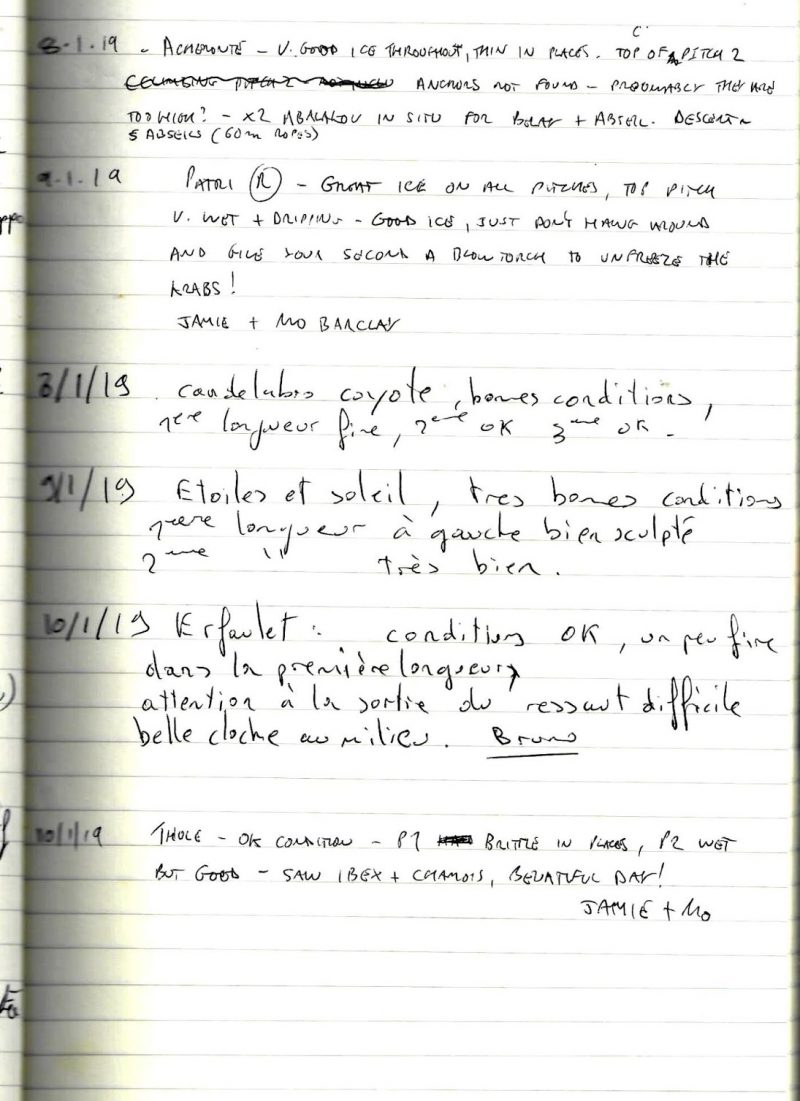 8-1.19 - ACHERONTE - V. GOOD ICE THROUGHOUT, THIN IN PLACES. TOP OF PITCH 2
ANCHORS NOT FOUND - PRESUMABLY THEY ARE
TOO HIGH? - X2 ABALAKOV IN SITU FOR BELAY + ABSEIL. DESCENT
5 ABSEILS (60m ROPES)
9.1.19 PATRI (R) - GREAT ICE ON ALL PITCHES, TOP PITCH
V. WET + DRIPPING - GOOD ICE, JUST DON'T HANG AROUND
AND GIVE YOUR SECOND A BLOWTORCH TO UNFREEZE THE
KRABS!
JAMIE + MO BARCLAY
8/1/19 candelabro coyote, bonnes conditions,
1ere longueur fine, 2eme OK 3eme OK.
9/1/19 Etoiles et soleil, tres bonnes conditions
1ere longueur à gauche bien sculpté
2eme " très bien.
10/1/19 Erfaulet : conditions OK, un peu fine
dans la première longueur,
attention à la sortie du ressaut difficile
belle cloche au milieu. Bruno
10/1/19 THOLE - OK CONDITION - P1 BRITTLE IN PLACES, P2 WET
BUT GOOD - SAW IBEX + CHAMOIS, BEUATIFUL DAY!
JAMIE + MO